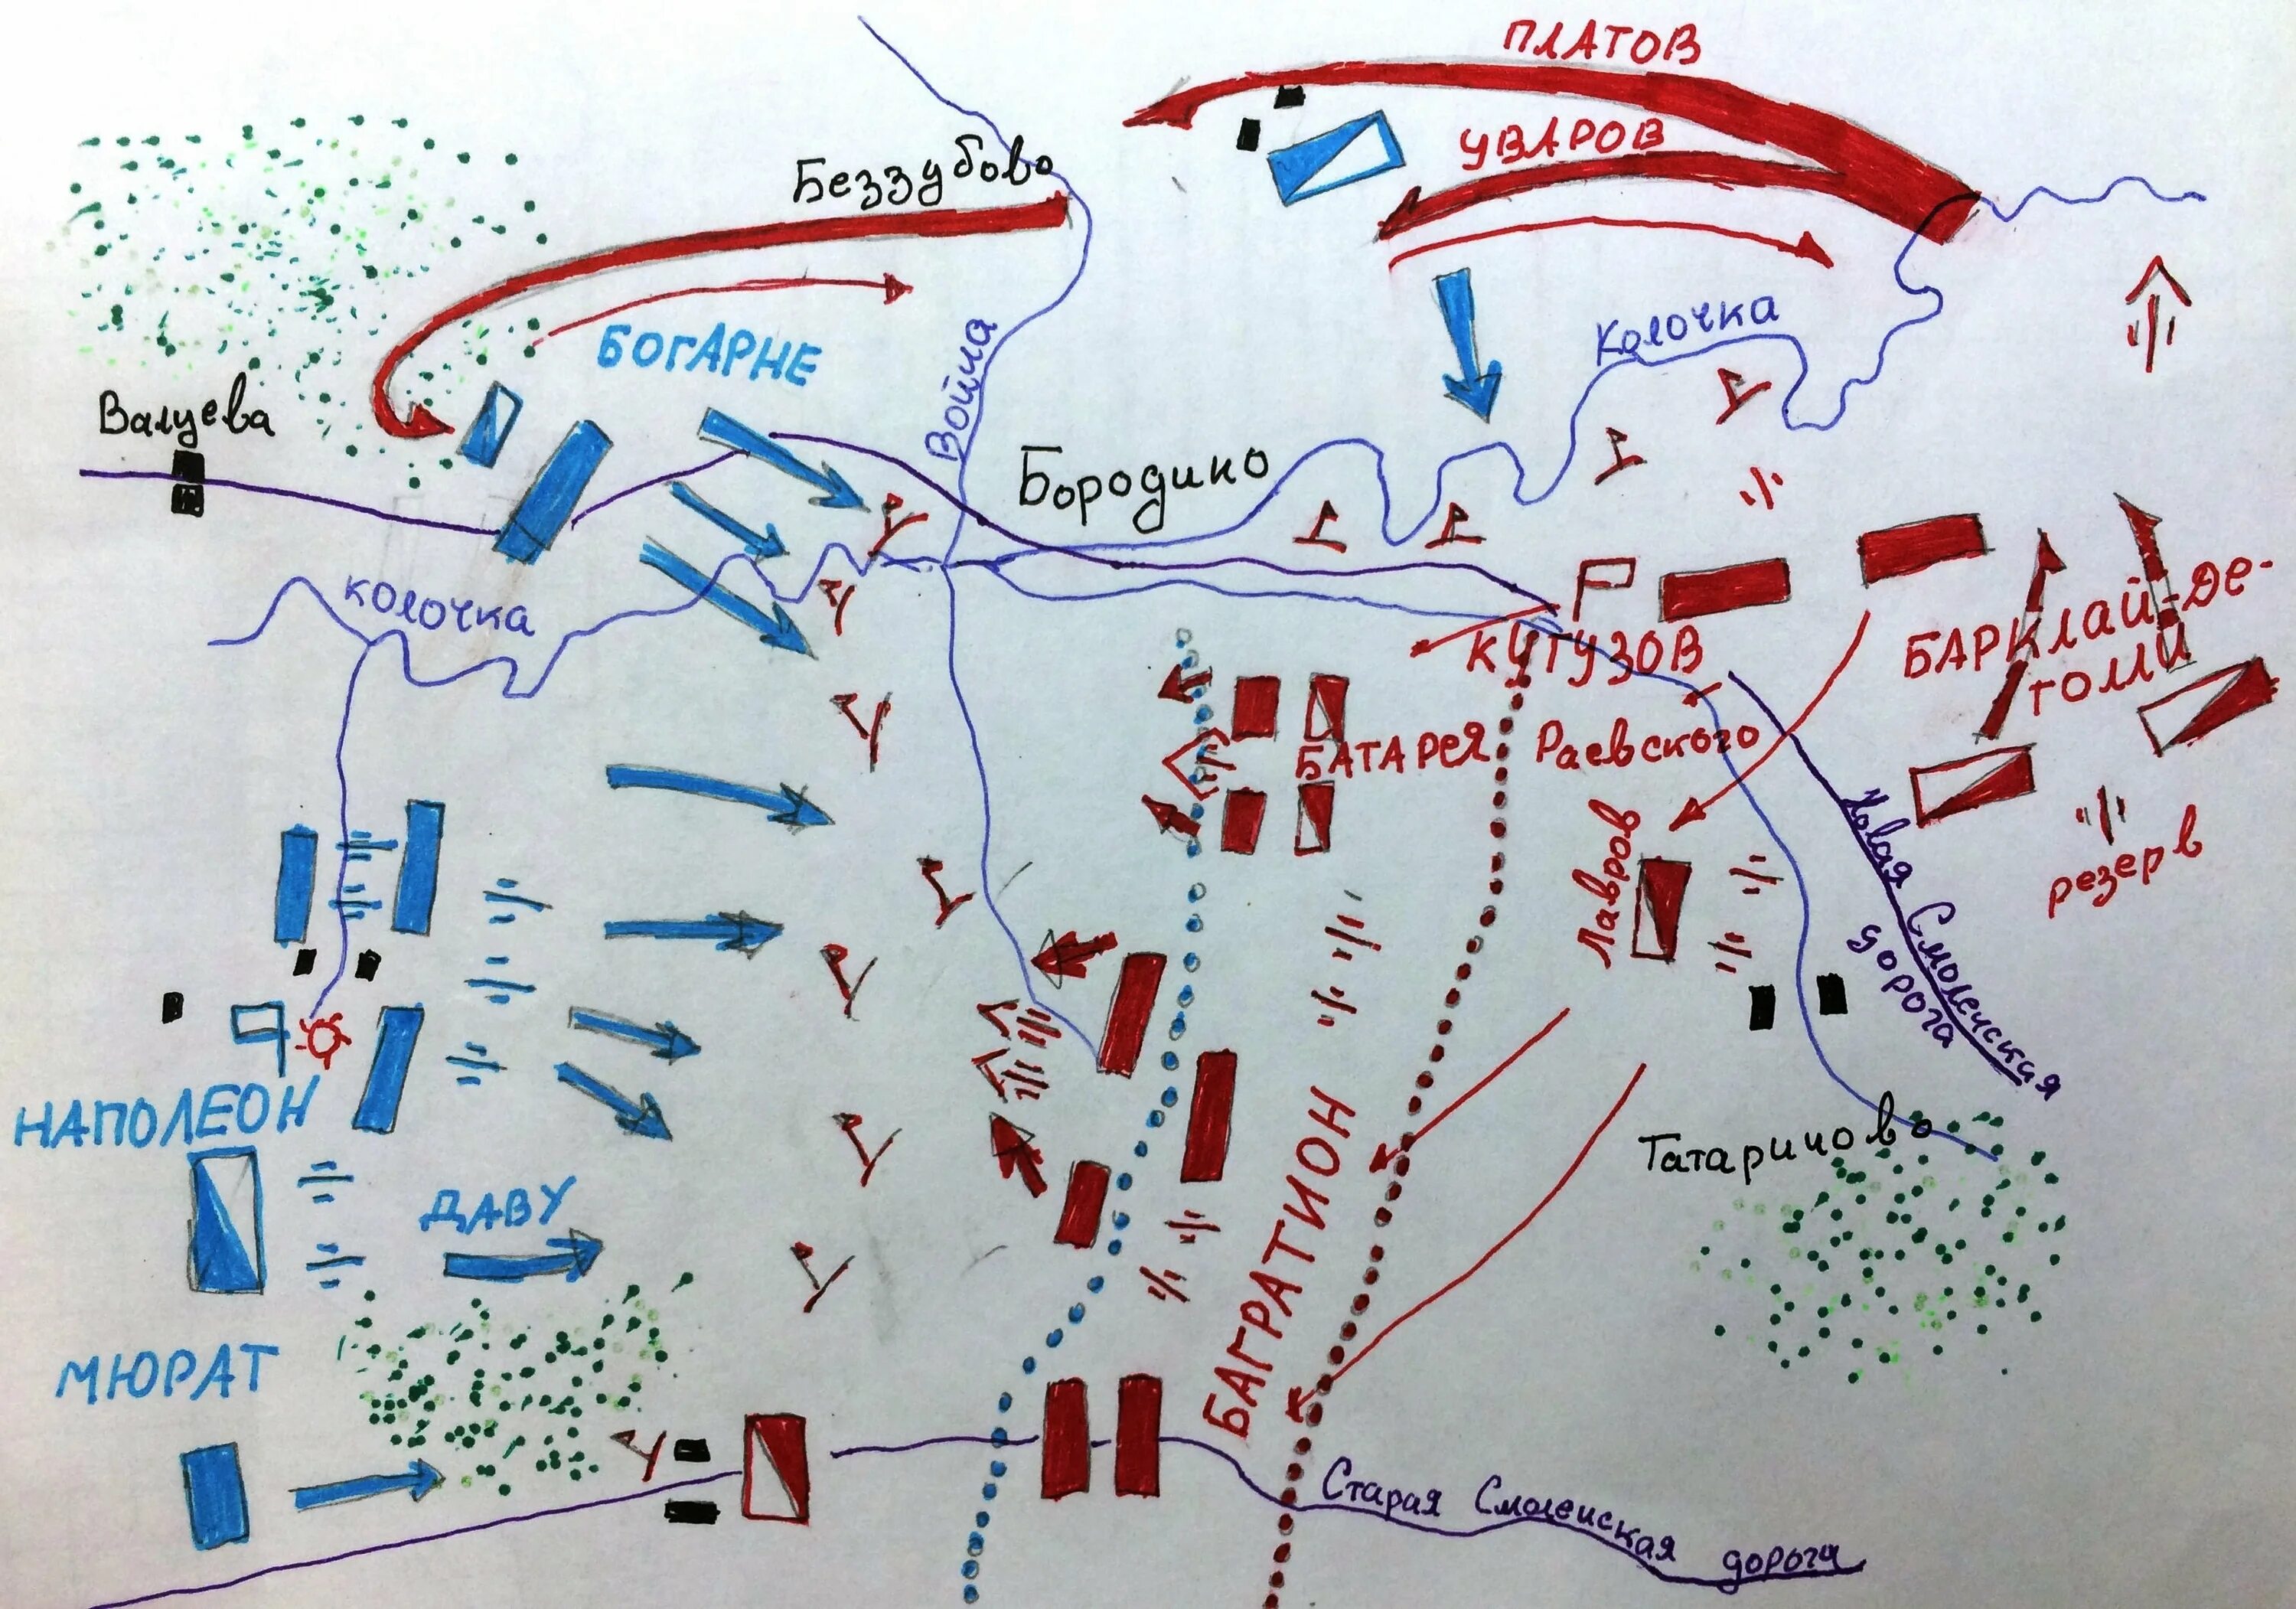 ПЛАТОВ
УВАРОВ
Беззубово
БОГАРНЕ
Война
Колочка
Валуева
Бородино
колочка
КУТУЗОВ
БАРКЛАЙ-ДЕ-
ТОЛЛИ
БАТАРЕЯ Раевского
Лавров
резерв
Новая Смоленская
дорога
НАПОЛЕОН
ДАВУ
БАГРАТИОН
Татариново
МЮРАТ
Старая Смоленская дорога